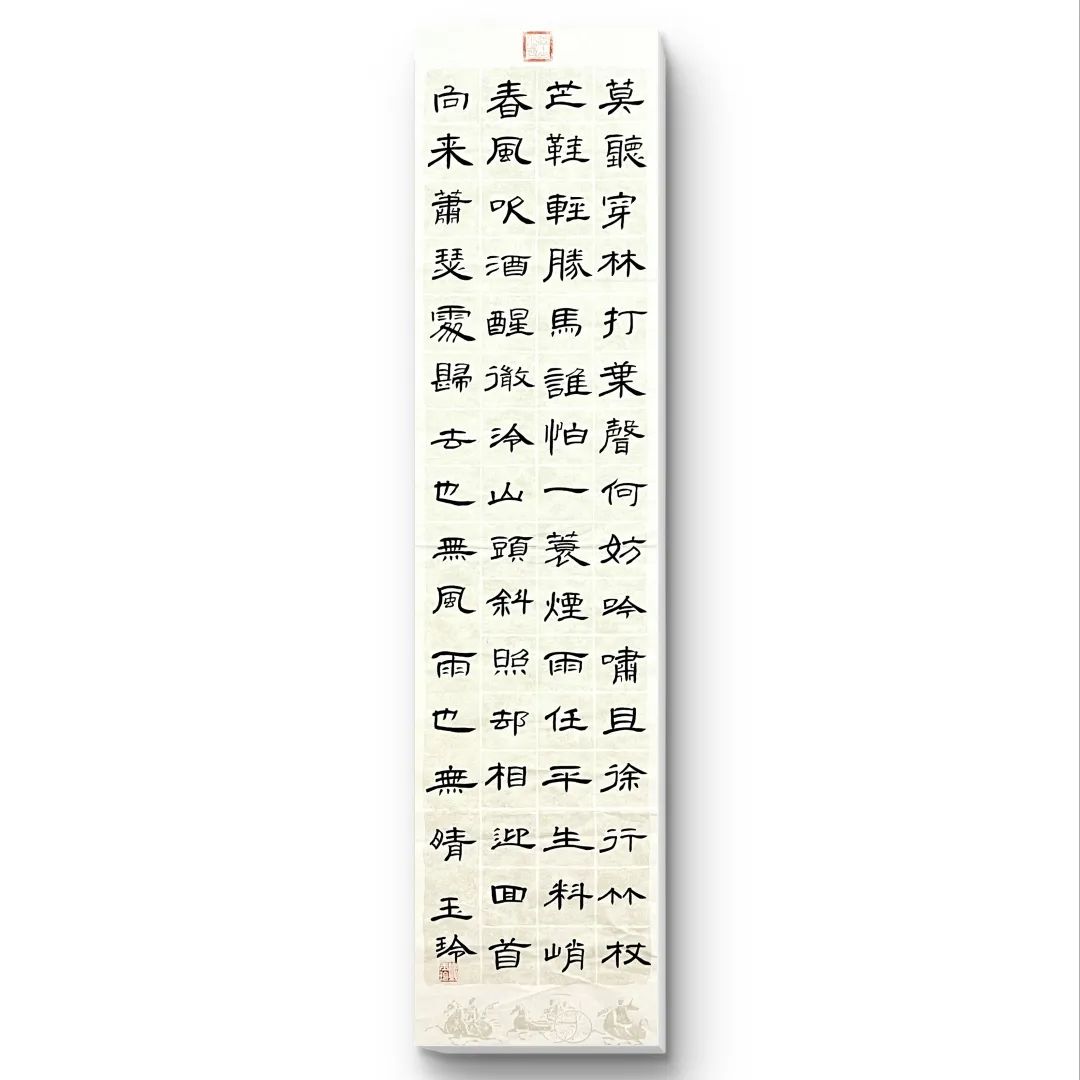 莫聽穿林打葉聲何妨吟嘯且徐行竹杖
芒鞋輕勝馬誰怕一蓑煙雨任平生料峭
春風吹酒醒徹泠山頭斜照却相迎回首
向来蕭瑟處歸去也無風雨也無晴玉玲